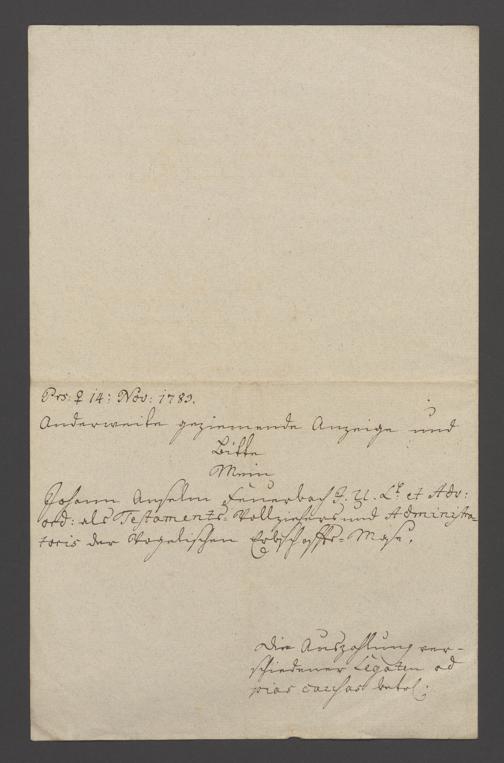 Prs: ♀ 14: Nov: 1783.
Anderweite geziemende Anzeige und
Bitte
Mein
Johann Anselm Feuerbach J. U. Lt. et Adv:
ord: als Testaments-Vollziehers und Administra-
toris der Vogelischen Erbschaffts-Mass.
Die Auszahlung ver-
schiedener Legaten ad
pias caussas betrl: